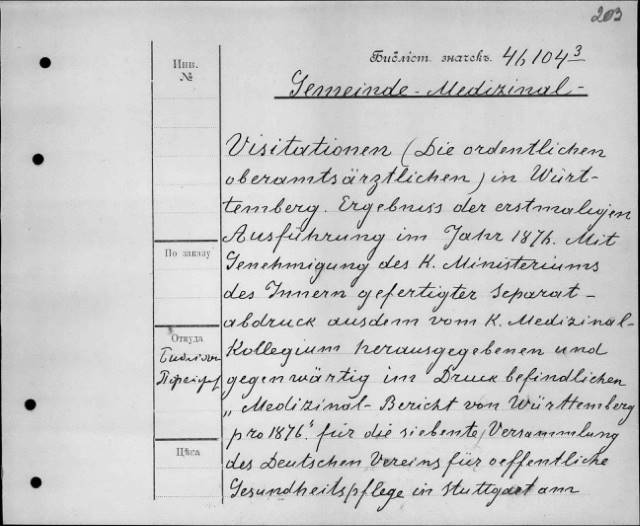 203
Библіот. значекъ. 46104³
Gemeinde-Medizinal-
Инв.
№
Visitationen (Die ordentlichen
oberamtsärztlichen) in Würt-
temberg. Ergebniss der erstmaligen
Ausführung im Jahr 1876. Mit
По заказу
Genehmigung des K. Ministeriums
des Innern gefertigter Separat-
abdruck aus dem vom K. Medizinal-
Откуда
Kollegium herausgegebenen und
gegenwärtig im Druck befindlichen
„Medizinal-Bericht von Württemberg
pro 1876". für die siebente Versammlung
Цѣса
des Deutschen Vereins für oeffentliche
Gesundheitspflege in Stuttgart am